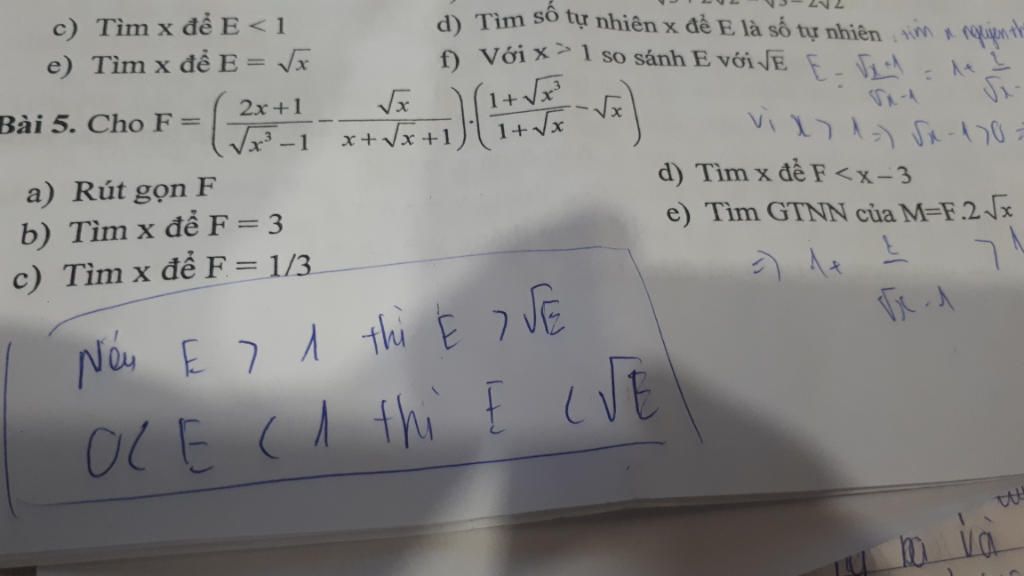 c) Tìm x để E < 1
d) Tìm số tự nhiên x để E là số tự nhiên
e) Tìm x để E = √x
f) Với x > 1 so sánh E với √E
E = (√x+1)/(√x-1) = 1 +
vì x > 1 => √x - 1 > 0 =>
Bài 5. Cho F = ((2x+1)/(√x³-1) - √x/(x+√x+1)).((1+√x³)/(1+√x) - √x)
a) Rút gọn F
b) Tìm x để F = 3
c) Tìm x để F = 1/3
d) Tìm x để F < x - 3
e) Tìm GTNN của M=F.2√x
=> 1 + /(√x - 1) > 1
Nếu E > 1 thì E > √E
0 < E < 1 thì E < √E
và